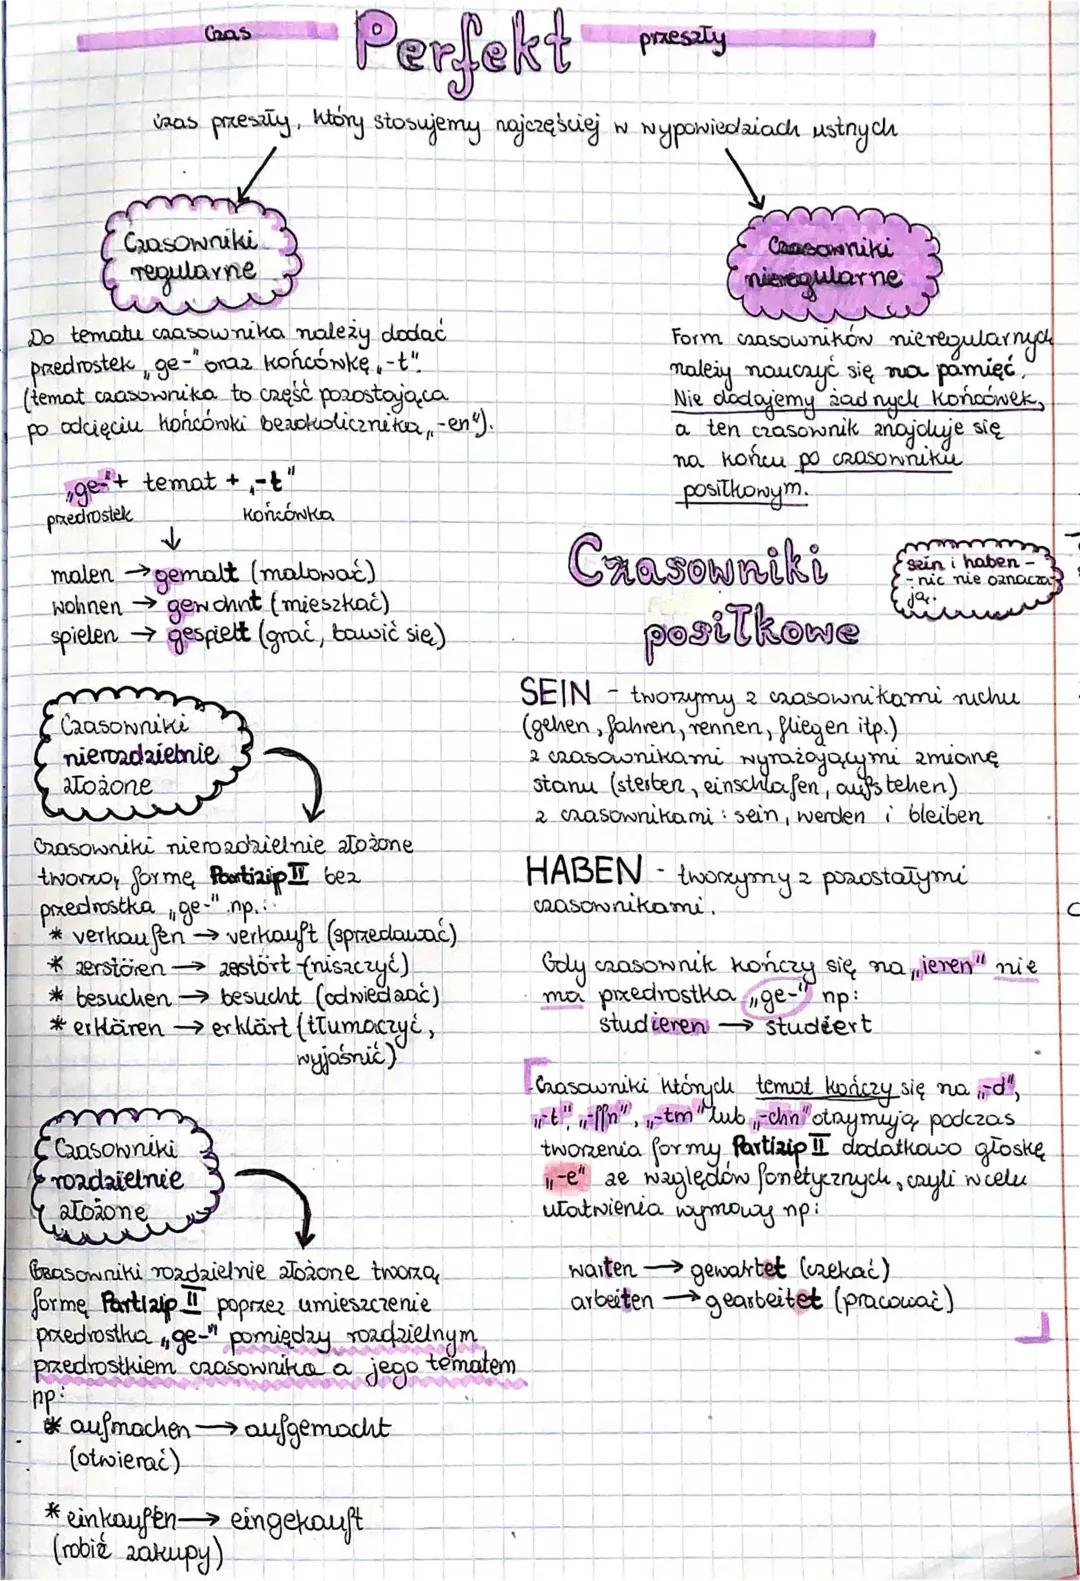 Czas Perfekt przeszły
czas przeszły, który stosujemy najczęściej w wypowiedziach ustnych
Czasowniki
regularne
Do tematu czasownika należy dodać
przedrostek „ge-" oraz końcówkę „-t".
(temat czasownika to część pozostająca
po odcięciu końcówki bezokolicznika „-en").
„ge-" + temat + „-t"
przedrostek końcówka
malen → gemalt (malować)
wohnen → gewohnt (mieszkać)
spielen → gespielt (grać, bawić się)
Czasowniki
nierozdzielnie
złożone
Czasowniki nierozdzielnie złożone
tworzą formę Partizip II bez
przedrostka „ge-" np.:
* verkaufen → verkauft (sprzedawać)
* zerstören → zestört (niszczyć)
* besuchen → besucht (odwiedzać)
* erklären → erklärt (tłumaczyć,
wyjaśnić)
Czasowniki
rozdzielnie
złożone
Czasowniki rozdzielnie złożone tworzą
formę Partizip II poprzez umieszczenie
przedrostka „ge-" pomiędzy rozdzielnym
przedrostkiem czasownika a jego tematem
np:
* aufmachen → aufgemacht
(otwierać)
* einkaufen → eingekauft
(robić zakupy)
Czasowniki
nieregularne
Form czasowników nieregularnych
należy nauczyć się na pamięć.
Nie dodajemy żadnych końcówek,
a ten czasownik znajduje się
na końcu po czasowniku
posiłkowym.
Czasowniki
posiłkowe
sein i haben -
- nic nie oznacza
ją.
SEIN - tworzymy z czasownikami ruchu
(gehen, fahren, rennen, fliegen itp.)
z czasownikami wyrażającymi zmianę
stanu (sterben, einschlafen, aufstehen)
z czasownikami: sein, werden i bleiben
HABEN - tworzymy z pozostałymi
czasownikami.
Gdy czasownik kończy się na „ieren" nie
ma przedrostka „ge-" np:
studieren → studiert
Czasowniki których temat kończy się na „-d",
„-t", „-ffn", „-tm" lub „-chn" otrzymują podczas
tworzenia formy Partizip II dodatkowo głoskę
„-e" ze względów fonetycznych, czyli w celu
ułatwienia wymowy np:
warten → gewartet (czekać)
arbeiten → gearbeitet (pracować)